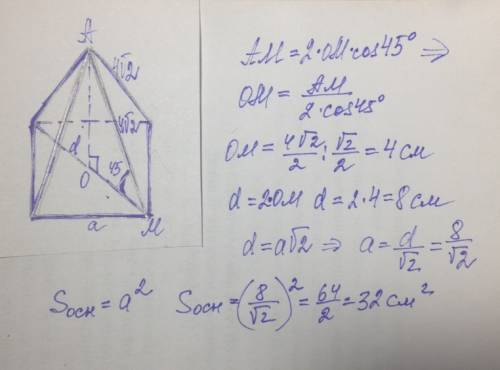 A
4√2
4√2
d
45
O
a
M
AM=2·OM·cos45° ⇒
OM= AM / 2·cos45°
OM= 4√2 / 2 : √2 / 2 =4 см
d=2OM d=2·4=8 см
d=a√2 ⇒ a= d / √2 = 8 / √2
Sосн=a² Sосн=(8 / √2)²= 64 / 2 =32 см²